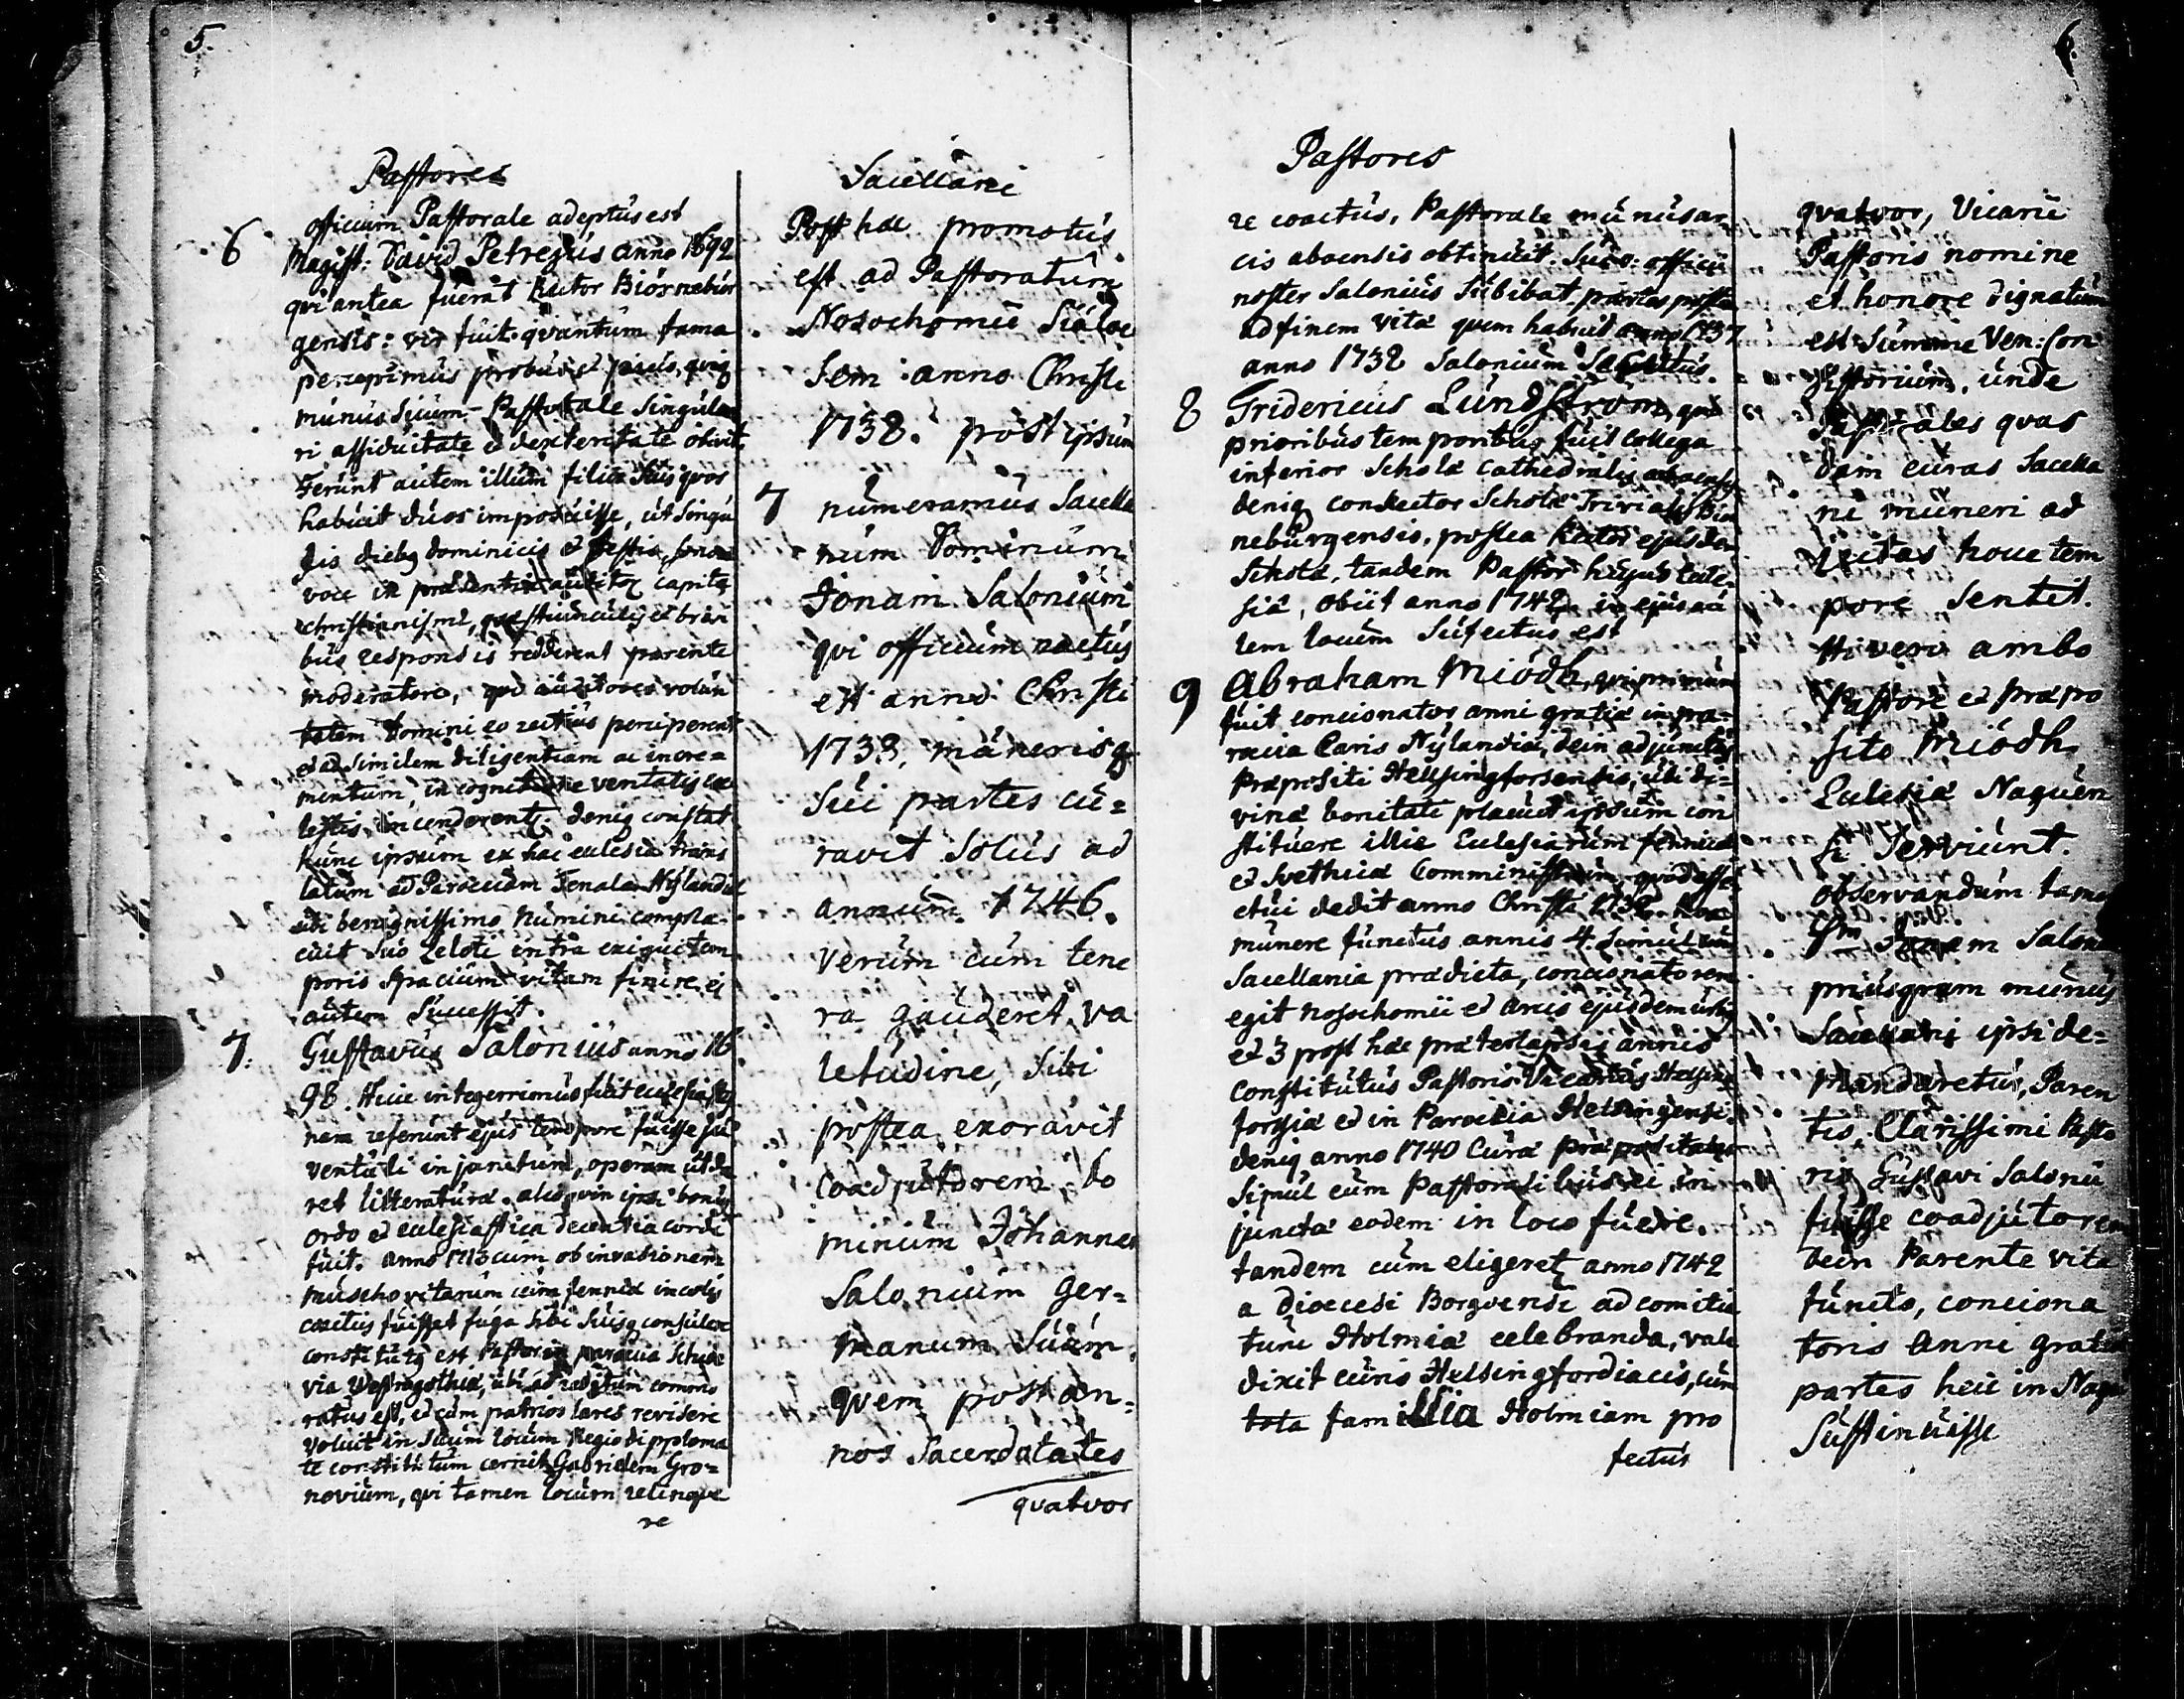 5.
Pastores
officium Pastorale adeptus est
6 Magist: David Petrejus anno 1692
qvi antea fuerat Rector Biörnebur
gensis: vir fuit qvantum fama
percepimus probus et pius, qviq
munus suum Pastorale singula
ri assiduitate et dexteritate obivit
Ferunt autem illum filiis suis qvos
habuit duos imposuisse, ut singu
lis dieb9 dominicis et festis, sonora
voce in præsentia auditor capita
christianismi, qvæstiunculis et brevi
bus responsis redderent parente
moderatore, qvo auditores volun
tatem Domini eo rectius perciperent
et ad similem diligentiam ac incre=
mentum, in cognitione veritatis cæ
lestis incenderent. deniq constat
hunc ipsum ex hac eclesia trans
latum ad Paroeciam Tenala Nylandiæ
ubi benignissimo Numini compla
cuit suo Zeloti intra exiguum tem
poris spacium vitam finire, ei
autem successit.
7. Gustavus Salonius anno 16
98. Huic integerrimus fuit eclesiastes
nam referunt ejus tempore fuisse ju
ventuti injunctum, operam ut da
ret litteraturæ. alioqvin ipsi bonus
ordo et eclesiastica decentia cordi
fuit. anno 1713 cum ob invasionem
muschovitarum cum fennicæ incolis
coactus fuisset fuga sibi suisq consulere
constitut9 est Pastor in paroecia Schede
via Vestrogothiæ, ubi ad reditum commo
ratus est, et cum patrios lares revisere
voluit in suum locum Regio dipploma
te constitutum cernit Gabrielem Gro=
novium, qvi tamen locum relinqve
re
Sacellani
Post hæc promotus
est ad Pastoratum
Nosochomii Siälöe
sem anno Christi
1738. post ipsum
7 numeramus Sacella
num Dominum
Jonam Salonium
qvi officium nactus
est anno Christi
1738, munerisq
sui partes cu=
ravit solus ad
annum 1746.
verum cum tene
ra gauderet va
letudine, sibi
postea exoravit
coadjutorem, do
minum Johannem
Salonium ger=
manum suum,
qvem post an=
nos Sacerdotates
qvatvor
6.
Pastores
re coactus, Pastorale munus ar
cis aboensis obtinuit. Suas officii
noster Salonius subibat partes postea
ad finem vitæ qvem habuit anno 1737
anno 1738 Salonium secutus
8 Fridericus Lundström, qvi
prioribus temporibus fuit Collega
inferior Scholæ Cathedralis aboensis
deniq conRector Scholæ Trivialis Biör
neburgensis, postea Rector ejusdem
Scholæ, tandem Pastor hujus Ecle=
siæ, obiit anno 1742 in ejus au
tem locum sufectus est
9 Abraham Miödh, qvi primum
fuit concionator anni gratiæ in pa=
roecia Caris Nylandiæ, dein adjunctus
Præpositi Helsingforsensis, ubi di=
vinæ bonitati placuit ipsum con
stituere illic Eclesiarum fennicæ
et Svethicæ Comministrum, qvod esse
ctui dedit anno Christi 1732. hoc
munere functus annis 4. simul cum
Sacellania prædicta, concionatorem
egit nosochomii et arcis ejusdem urbis
et 3 post hæc præterlapsis annis
Constitutus Pastoris Vicarius Helsing
forsiæ et in Paroikia Helsingensi
deniq anno 1740 Curæ præpositales
simul cum Pastoralibus ei in
junctæ eodem in loco fuere.
tandem cum eligeret anno 1742
a Dioecesi Borgoensi ad comitia
tunc Holmiæ celebranda, vale
dixit curis Helsingfordiacis, cum
tota famillia Holmiam pro
fectus
qvatvor, Vicarii
Pastoris nomine
et honore dignatum
est Summe Ven: Con
sistorium, unde
Pastorales qvas
dam curas Sacella
ni muneri ad
junctas houc tem
pore sentit.
Hi vero ambo
Pastore et Præpo
sito Miödh
Eclesiæ Naguen
si serviunt.
observandum tamen
Jonam Salonium
priusqvam munus
Sacellani ipsi de=
mandaretur, Paren
tis, Clarissimi Pasto
ris Gustavi Salonii
fuisse coadjutorem
dein Parente vita
functo, conciona
toris anni gratiæ
partes heic in Nagu
sustinuisse